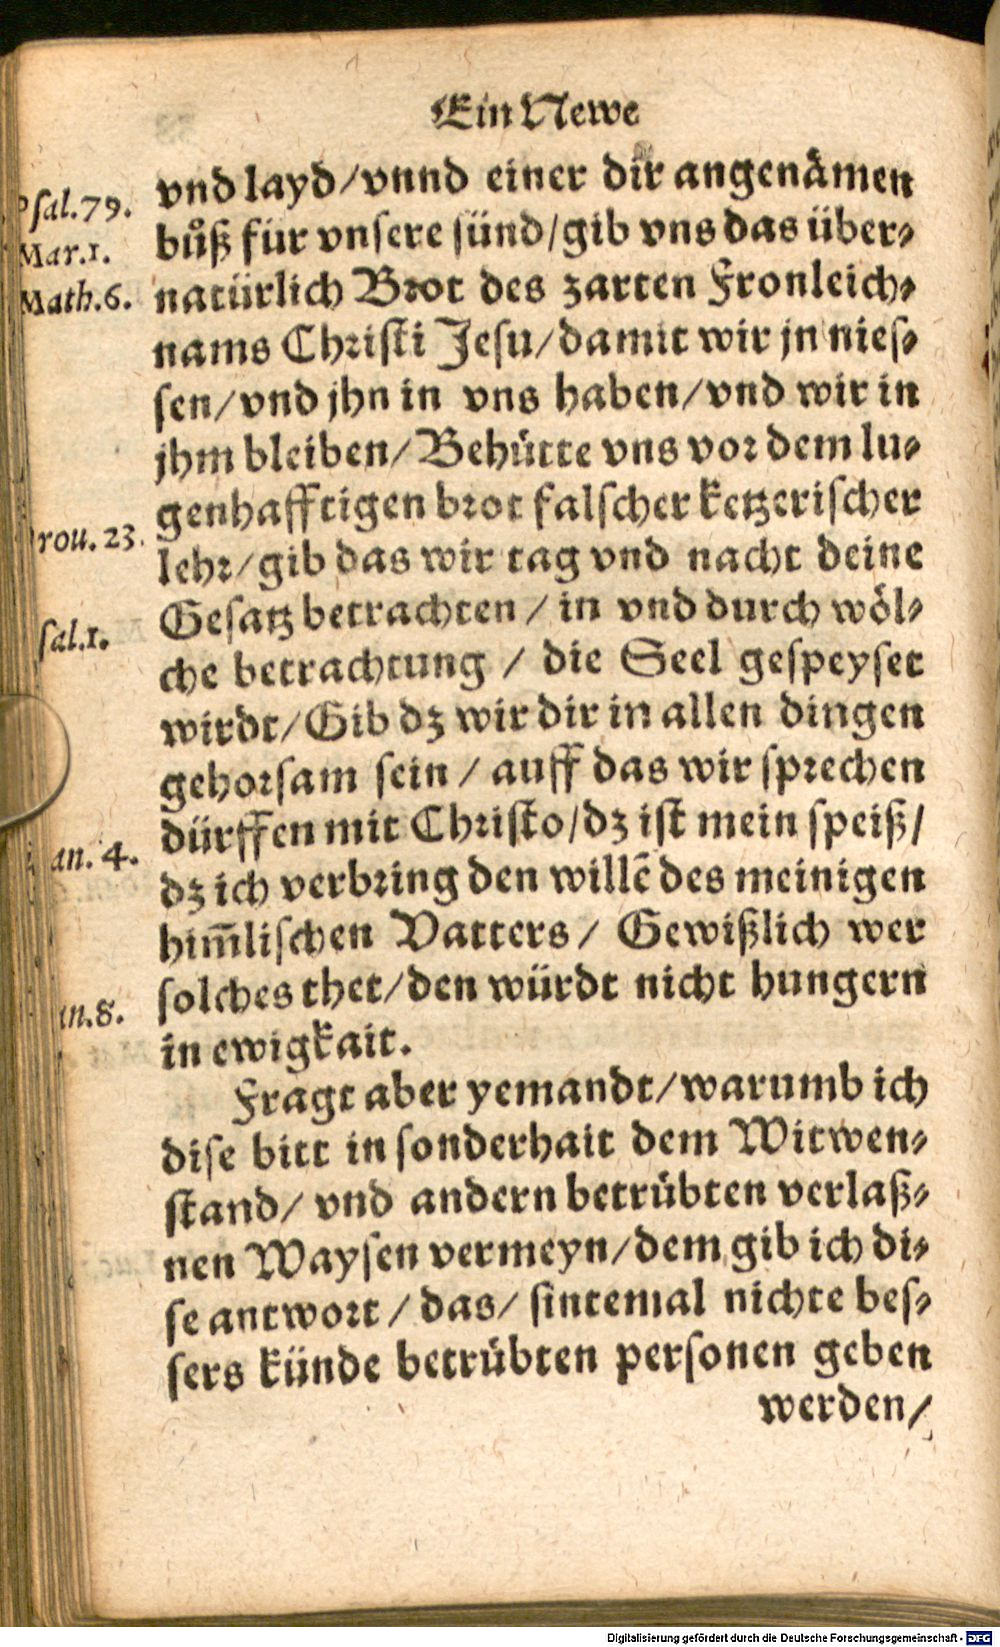 Ein Newe
vnd layd/vnnd einer dir angenämen
Psal.79.
bůß für vnsere sünd/gib vns das über⸗
Mar.1.
natürlich Brot des zarten Fronleich⸗
Math.6.
nams Christi Jesu/damit wir jn nies⸗
sen/vnd jhn in vns haben/vnd wir in
jhm bleiben/Behütte vns vor dem lu⸗
genhafftigen brot falscher ketzerischer
Prou.23.
lehr/gib das wir tag vnd nacht deine
Gesatz betrachten/in vnd durch wöl⸗
sal.1.
che betrachtung/die Seel gespeyset
wirdt/Gib dz wir dir in allen dingen
gehorsam sein/auff das wir sprechen
dürffen mit Christo/dz ist mein speiß/
an.4.
dz ich verbring den willẽ des meinigen
him̃lischen Vatters/Gewißlich wer
solches thet/den würdt nicht hungern
an.8.
in ewigkait.
Fragt aber yemandt/warumb ich
dise bitt in sonderhait dem Witwen⸗
stand/vnd andern betrübten verlaß⸗
nen Waysen vermeyn/dem gib ich di⸗
se antwort/das/sintemal nichte bes⸗
sers künde betrübten personen geben
werden/
Digitalisierung gefördert durch die Deutsche Forschungsgemeinschaft - DFG